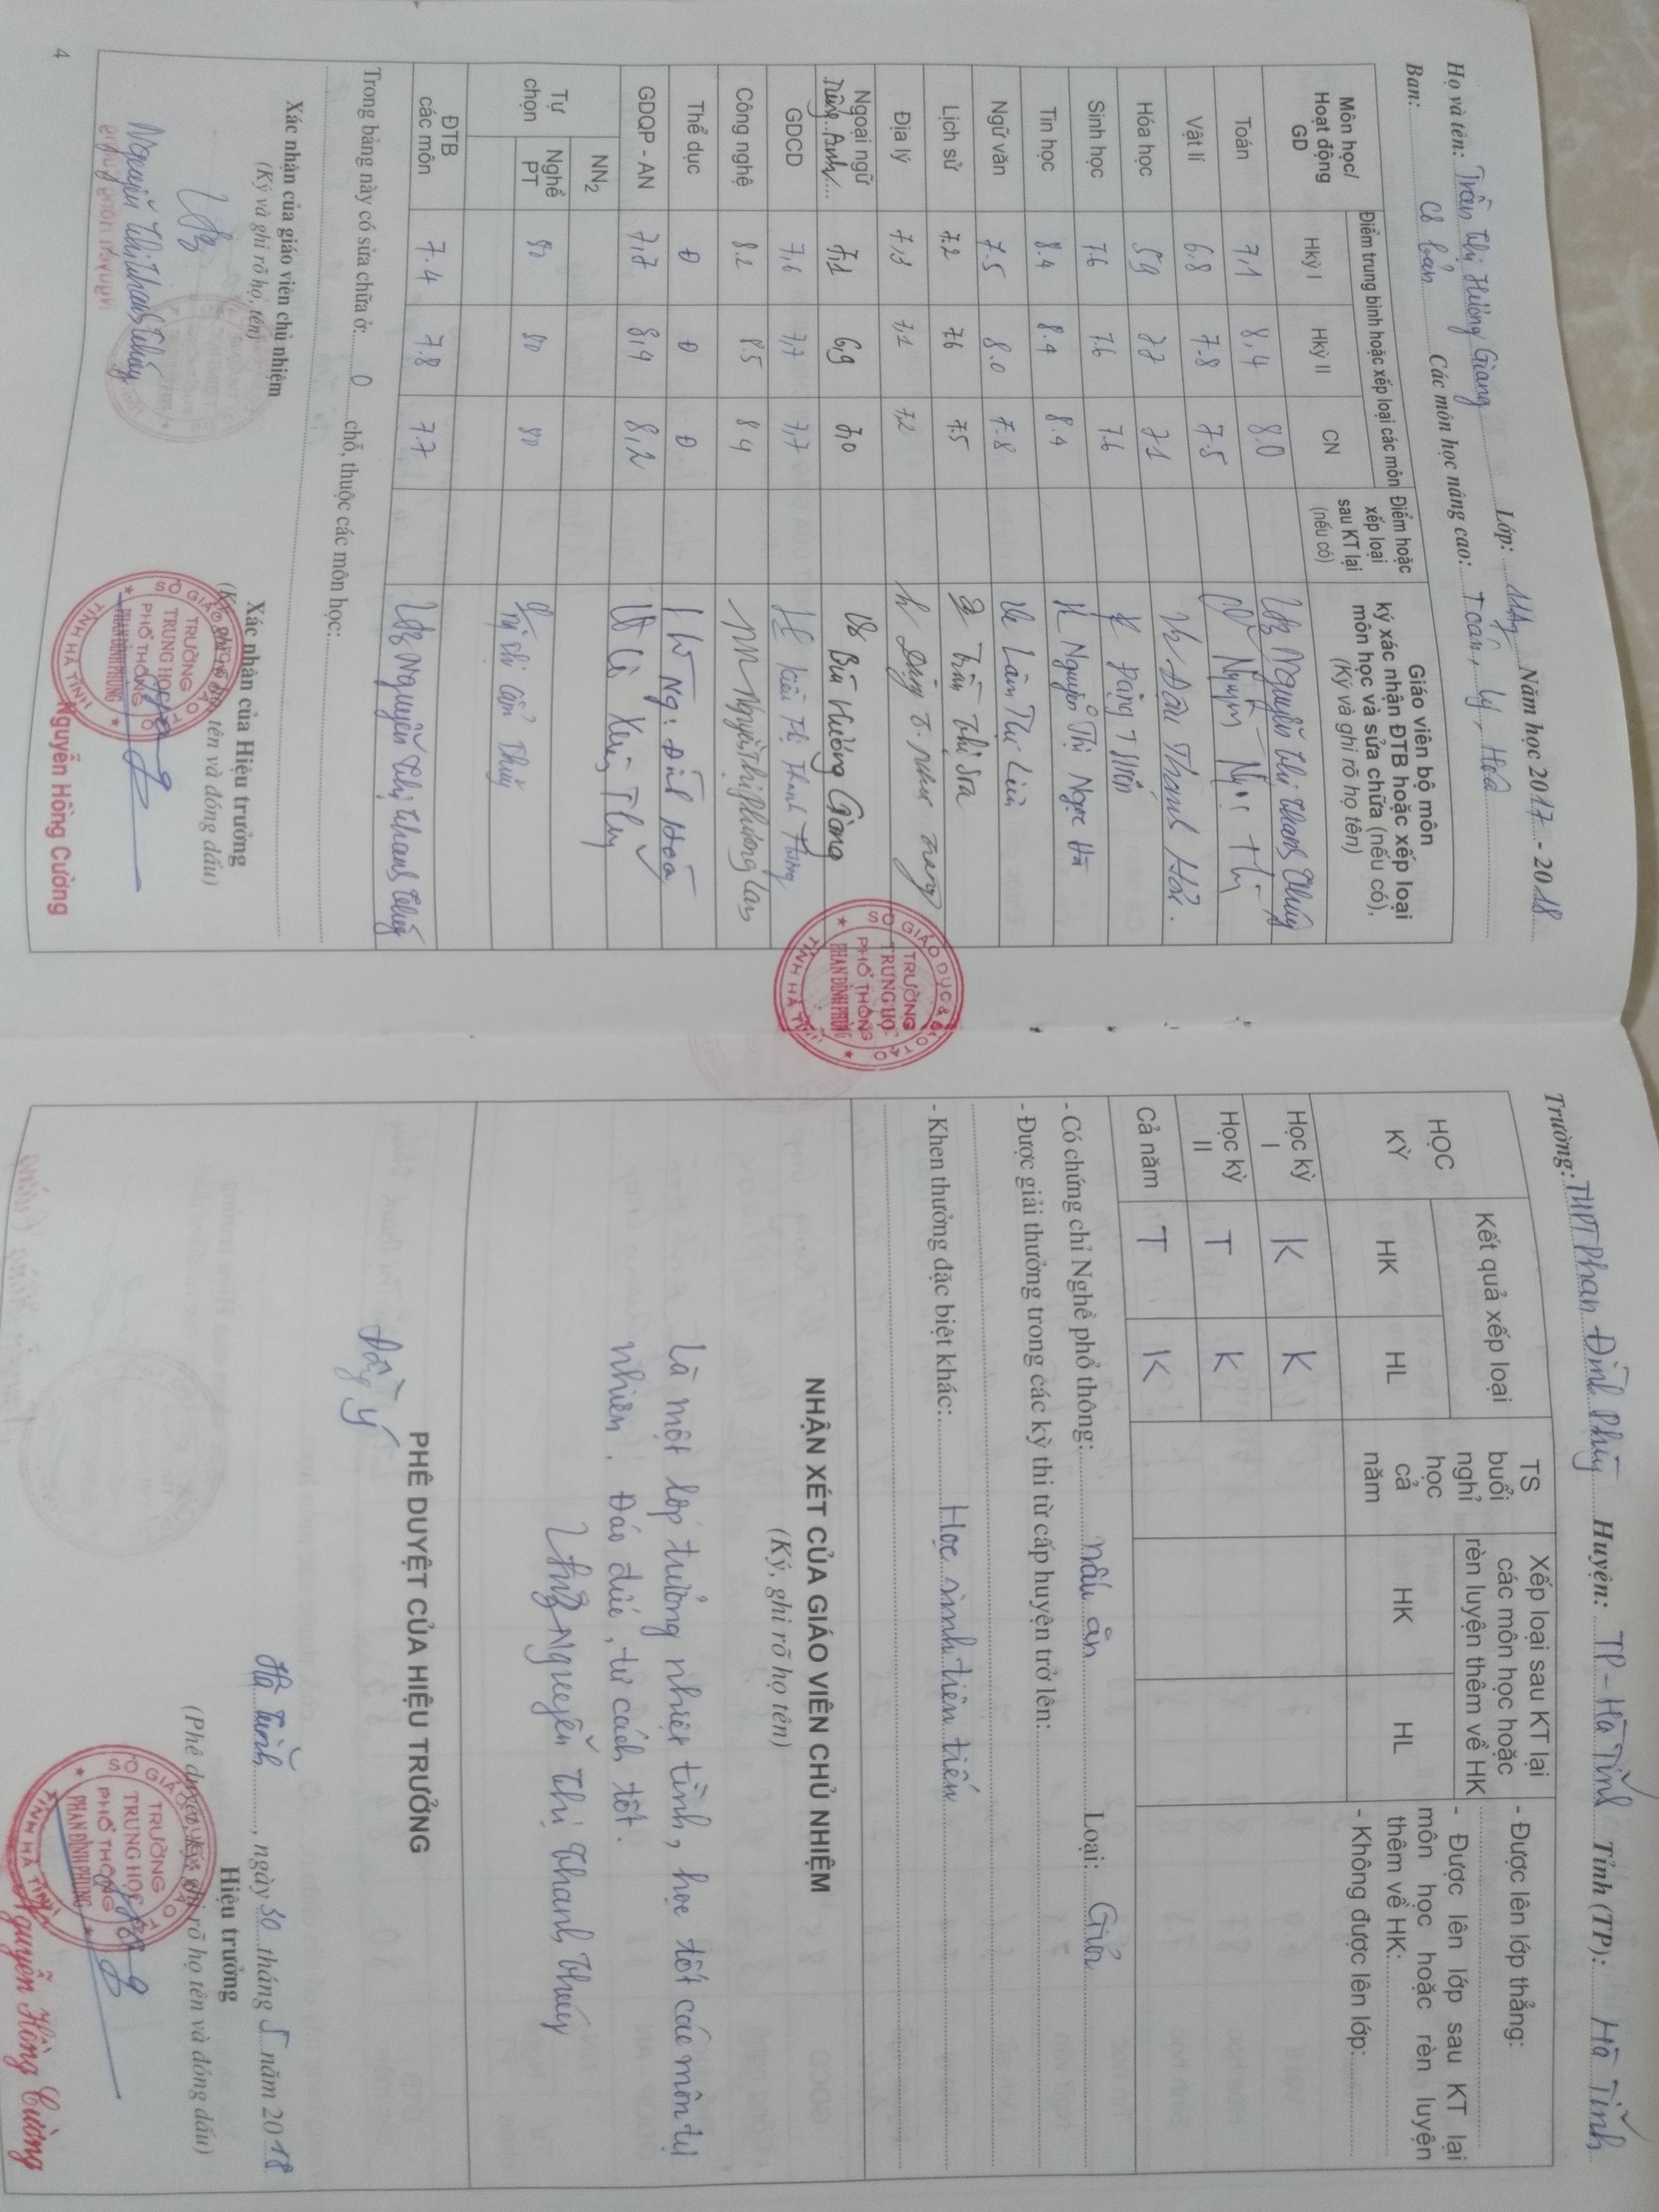 Họ và tên: Trần Thị Hương Giang Lớp: Năm học 2017 - 2018
Ban: Cơ bản Các môn học nâng cao: Toán, Lý, Hoá
Môn học/ Hoạt động GD | Điểm trung bình hoặc xếp loại các môn | Điểm hoặc xếp loại sau KT lại (nếu có) | Giáo viên bộ môn ký xác nhận ĐTB hoặc xếp loại môn học và sửa chữa (nếu có), (Ký và ghi rõ họ tên)
Hkỳ I | Hkỳ II | CN
Toán 7,1 8,4 8.0 Nguyễn Thị Thanh Thủy
Vật lí 6.8 7.8 7.5
Hóa học 59 77 71
Sinh học 7.6 7.6 7.6 Đặng T Hiền
Tin học 8.4 8.4 8.4 Nguyễn Thị Ngọc Hà
Ngữ văn 7.5 8.0 7.8
Lịch sử 7.2 76 7.5 Trần Thị
Địa lý 7,3 7,1 7,2
Ngoại ngữ Tiếng Anh 7,1 6,9 7,0 Bùi Hương Giang
GDCD 7,6 7,7 7,7
Công nghệ 8.2 8.5 8 4 Nguyễn Thị Phương Lan
Thể dục Đ Đ Đ
GDQP - AN 7,7 8,4 8,2
Tự chọn
NN2
Nghề PT 80 80 80
ĐTB các môn 7.4 7.8 7.7 Nguyễn Thị Thanh Thủy
Trong bảng này có sửa chữa ở: 0 chỗ, thuộc các môn học:
Xác nhận của giáo viên chủ nhiệm
(Ký và ghi rõ họ, tên)
Nguyễn Thị Thanh Thủy
Xác nhận của Hiệu trưởng
tên và đóng dấu)
SỞ GIÁO DỤC & ĐÀO TẠO
TRƯỜNG
TRUNG HỌC
PHỔ THÔNG
PHAN ĐÌNH PHÙNG
TỈNH HÀ TĨNH
Nguyễn Hồng Cường
4
Trường: THPT Phan Đình Phùng Huyện: TP - Hà Tĩnh Tỉnh (TP): Hà Tĩnh
HỌC KỲ | Kết quả xếp loại | TS buổi nghỉ học cả năm | Xếp loại sau KT lại các môn học hoặc rèn luyện thêm về HK
HK | HL | HK | HL
Học kỳ I K K
Học kỳ II T K
Cả năm T K
- Được lên lớp thẳng:
- Được lên lớp sau KT lại
môn học hoặc rèn luyện
thêm về HK:
- Không được lên lớp:
- Có chứng chỉ Nghề phổ thông: nấu ăn Loại: Giỏi
- Được giải thưởng trong các kỳ thi từ cấp huyện trở lên:
- Khen thưởng đặc biệt khác: Học sinh tiên tiến
NHẬN XÉT CỦA GIÁO VIÊN CHỦ NHIỆM
(Ký, ghi rõ họ tên)
Là một lớp trưởng nhiệt tình, học tốt các môn tự
nhiên. Đạo đức, tư cách tốt.
Nguyễn Thị Thanh Thủy
PHÊ DUYỆT CỦA HIỆU TRƯỞNG
Đồng ý
Hà Tĩnh, ngày 30 tháng 5 năm 2018
Hiệu trưởng
(Phê duyệt, ký, ghi rõ họ tên và đóng dấu)
SỞ GIÁO DỤC & ĐÀO TẠO
TRƯỜNG
TRUNG HỌC
PHỔ THÔNG
PHAN ĐÌNH PHÙNG
TỈNH HÀ TĨNH
Nguyễn Hồng Cường